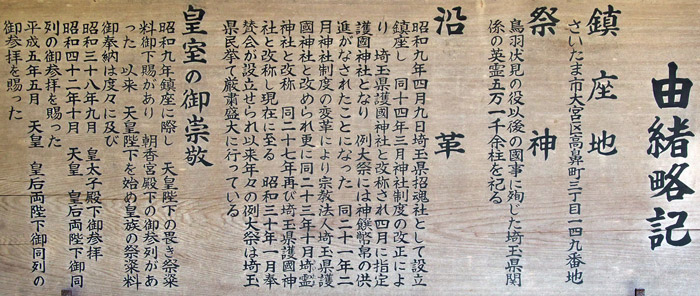 由緒略記
鎮座地
さいたま市大宮区高鼻町三丁目一四九番地
祭神
鳥羽伏見の役以後の國事に殉じた埼玉県関
係の英霊五万一千余柱を祀る
沿革
昭和九年四月九日埼玉県招魂社として設立
鎮座し 同十四年三月神社制度の改正によ
り 埼玉県護國神社と改称され四月に指定
護國神社となり 例大祭には神饌幣帛の供
進がなされたことになった 同二十一年二
月神社制度の変革により宗教法人埼玉県護
國神社と改められ更に同二十三年十月埼霊
神社と改称 同二十七年再び埼玉県護國神
社と改称し現在に至る 昭和三十年一月奉
賛会が設立せられ以来年々の例大祭は埼玉
県民挙て厳粛盛大に行っている
皇室の御崇敬
昭和九年鎮座に際し 天皇陛下の畏き祭粢
料御下賜があり 朝香宮殿下の御参列があ
った 以来 天皇陛下を始め皇族の祭粢料
御奉納は度々に及び
昭和三十八年九月 皇太子殿下御参拝
昭和四十二年十月 天皇 皇后両陛下御同
列の御参拝を賜った
平成五年五月 天皇 皇后両陛下御同列の
御参拝を賜った